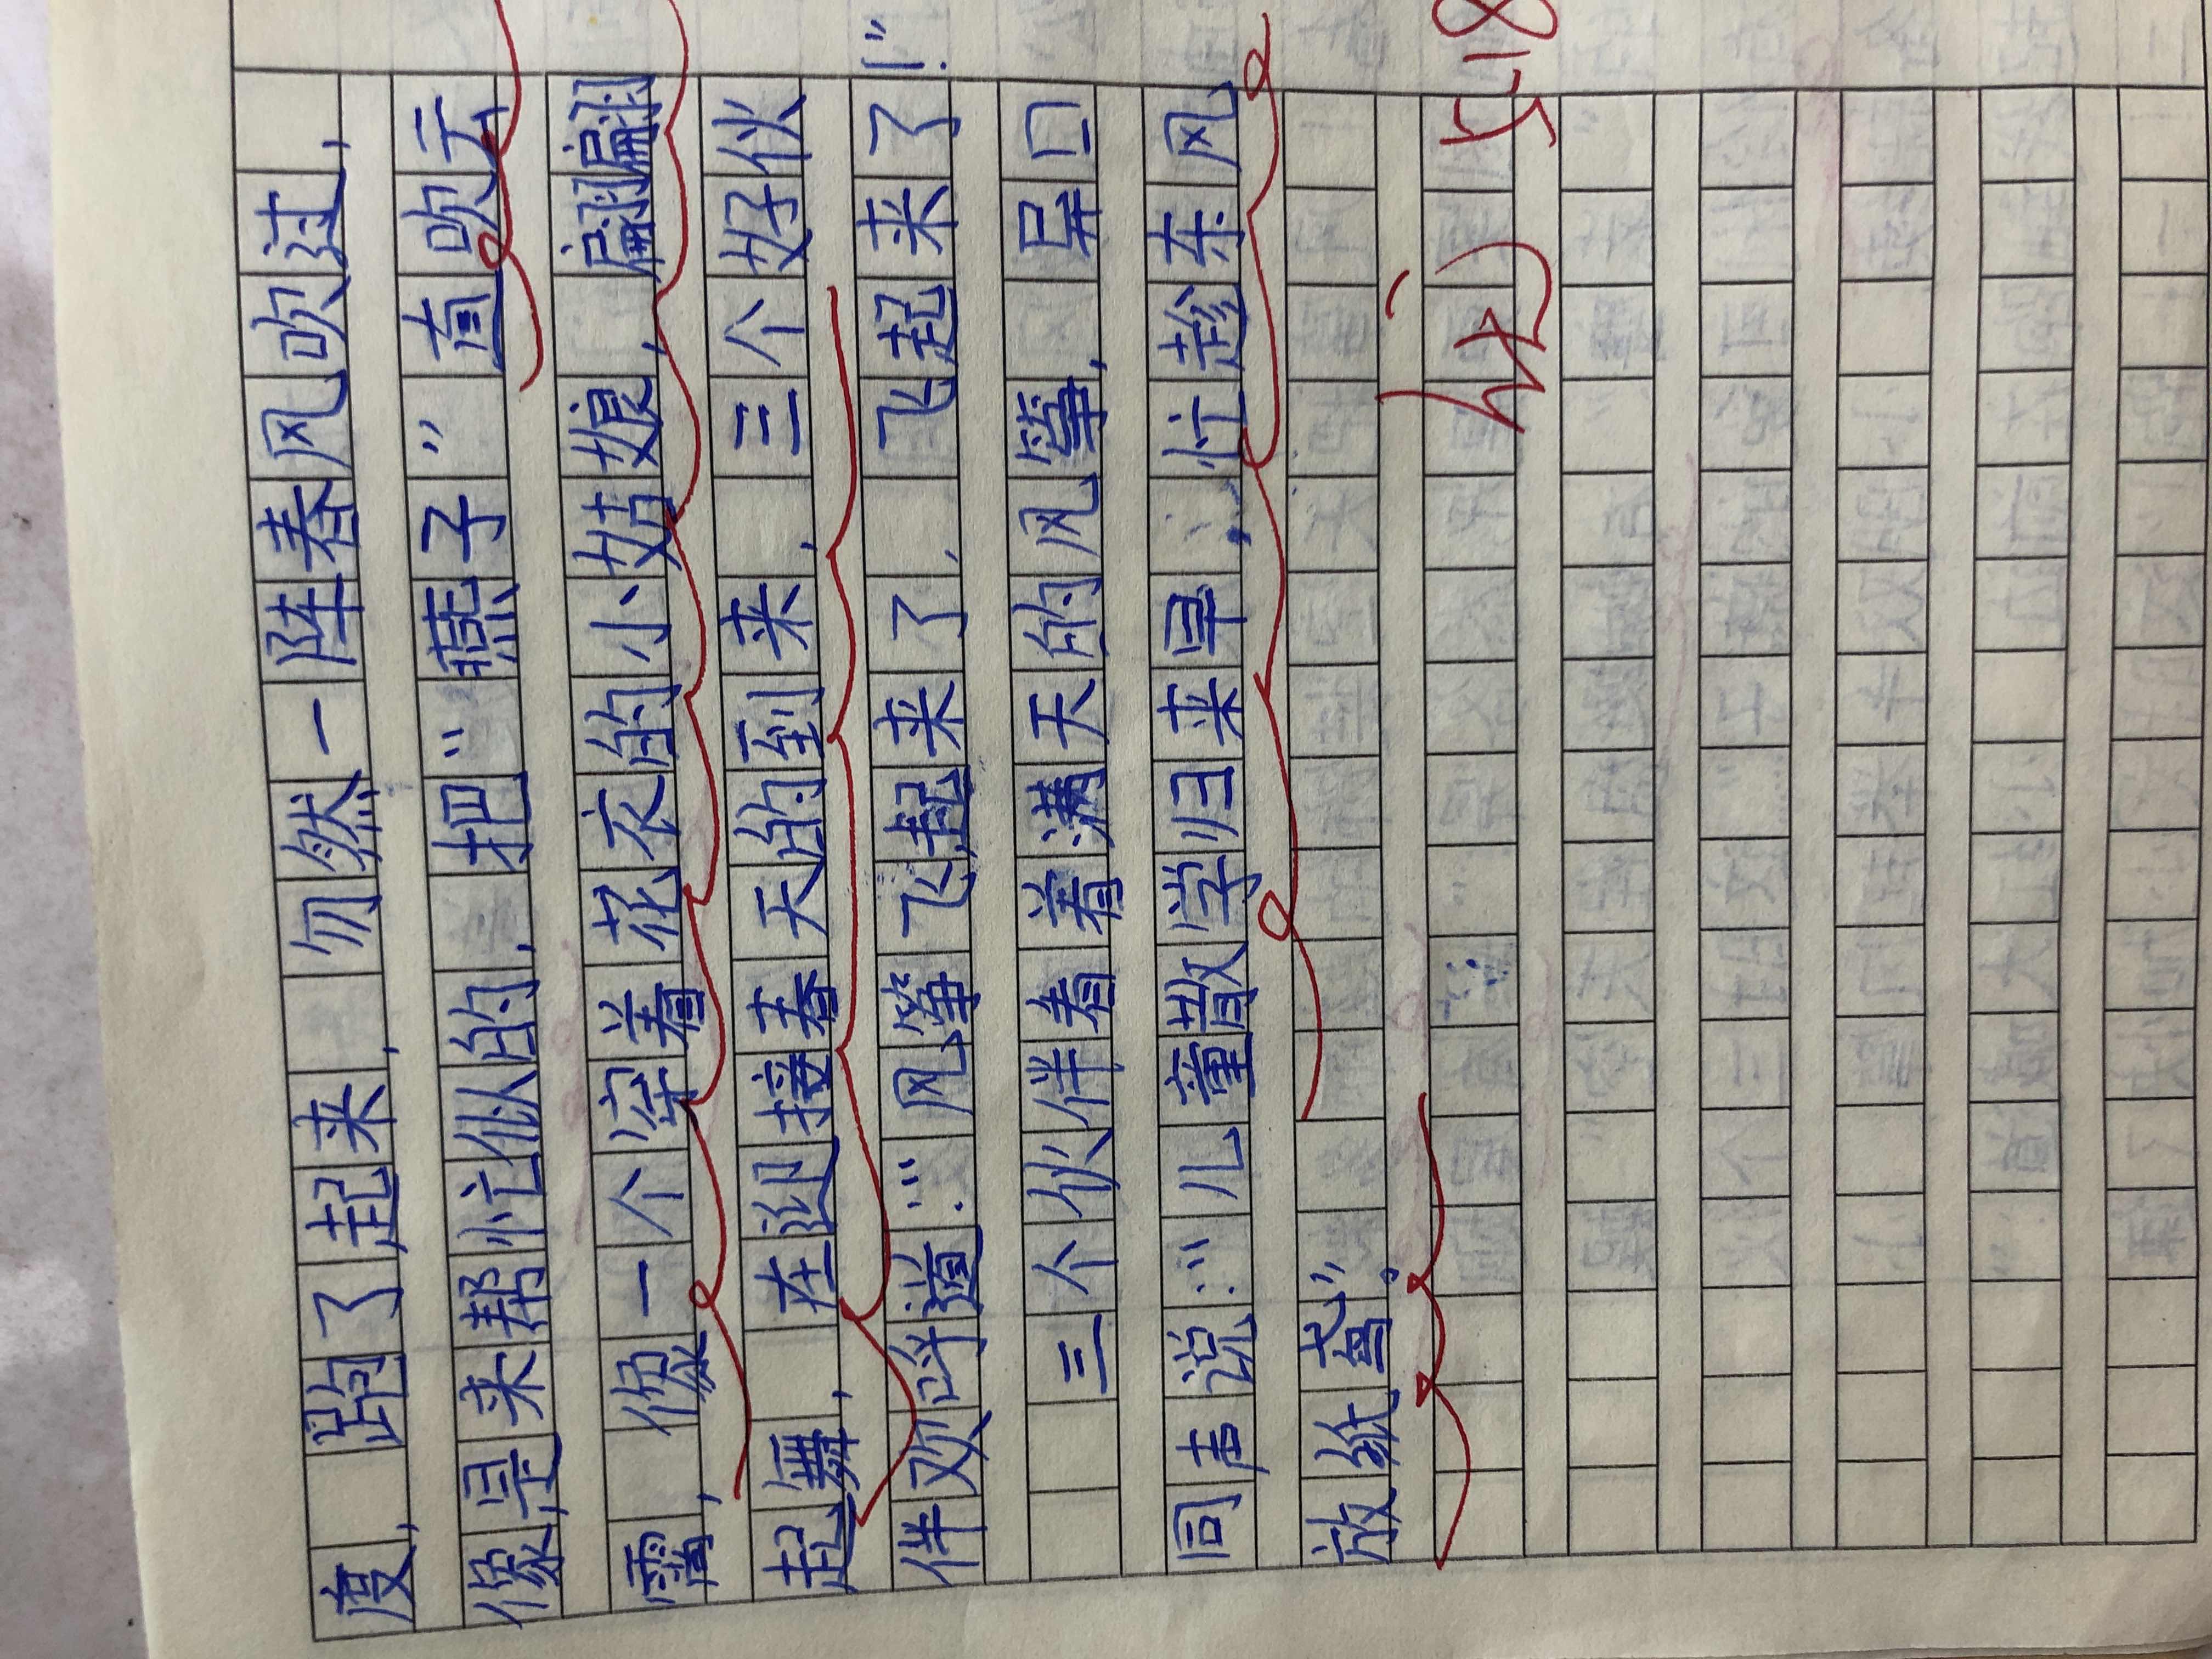 度，跑了起来，勿然一阵春风吹过，
像是来帮忙似的，把“燕子”直吹云
霄，像一个穿着花衣的小姑娘，翩翩
起舞，在迎接春天的到来，三个好伙
伴欢呼道：“风筝飞起来了，飞起来了！”
三个伙伴看着满天的风筝，异口
同声说：“儿童散学归来早，忙趁东风
放纸鸢”。
优